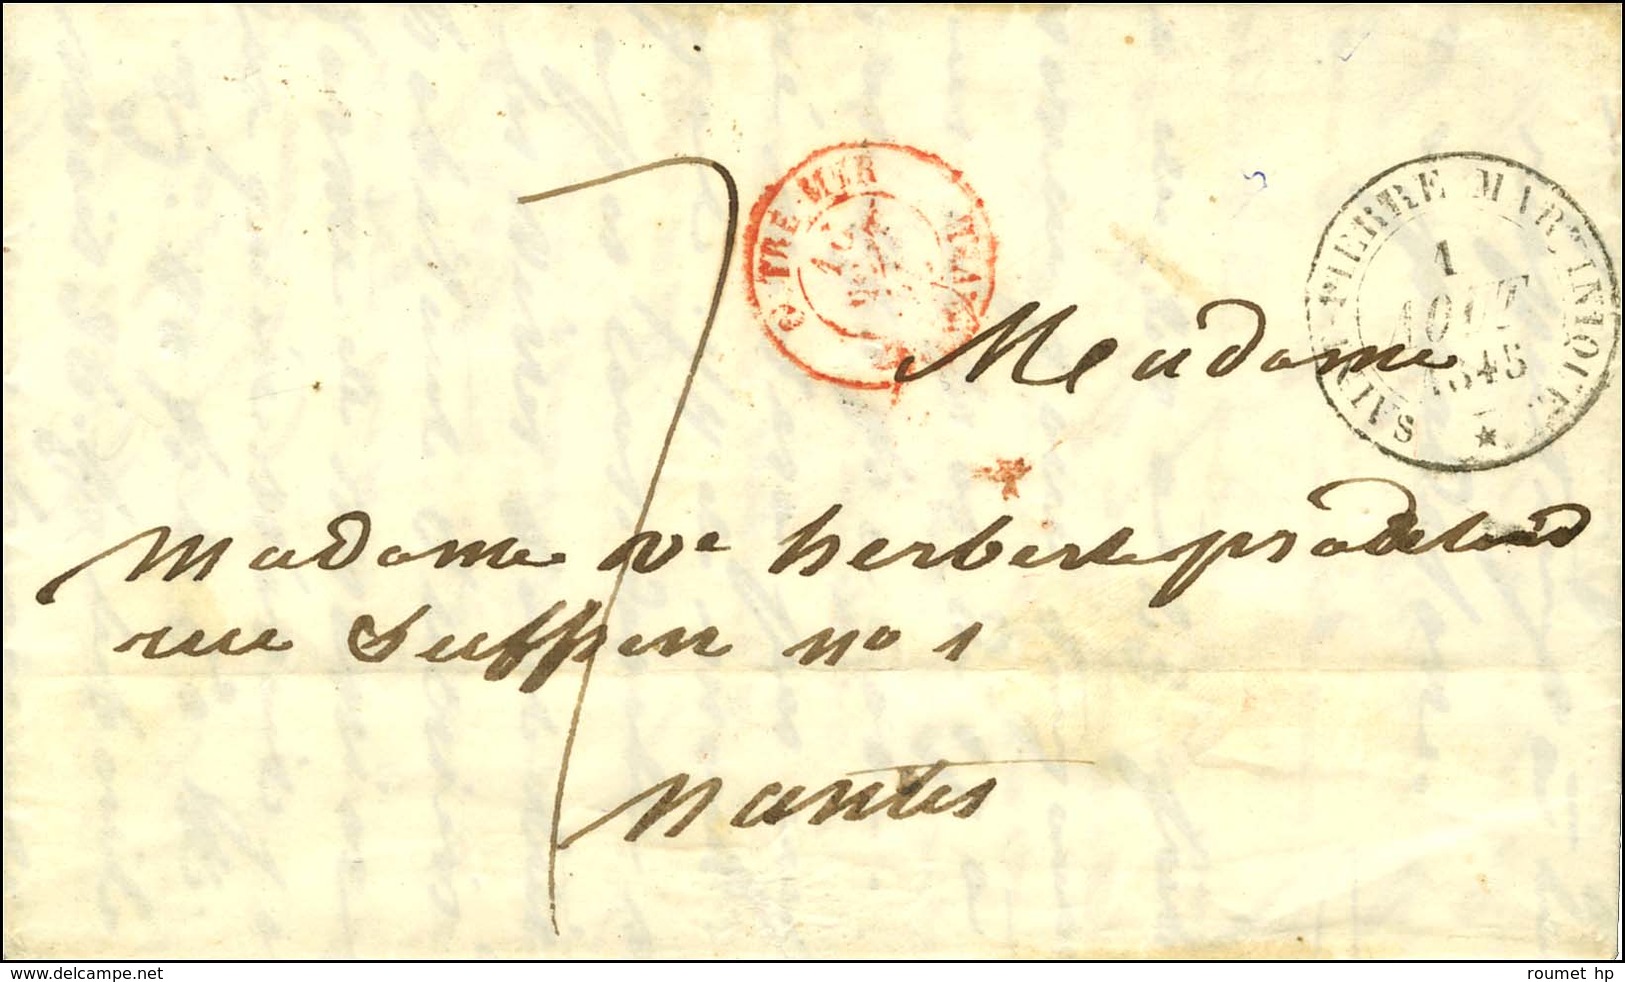 TRE-MER
SAINT-PIERRE MARTINIQUE
1
AOUT
1845
7
Madame
Madame Ve herbert
rue Suffren no 1
Nantes
www.delcampe.net
roumet hp